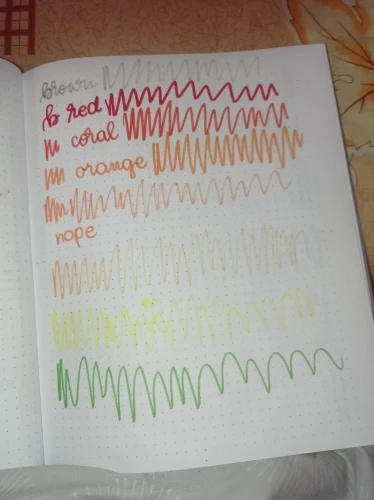 brown
b red
coral
orange
nope